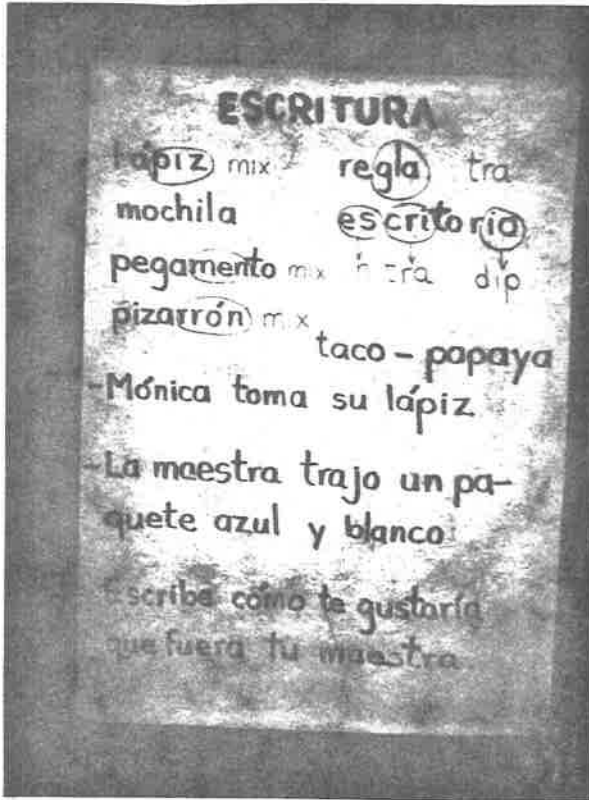 ESCRITURA
lápiz mix regla tra
mochila escritoria
pegamento mix tra dip
pizarrón mix
taco - papaya
-Mónica toma su lápiz
-La maestra trajo un pa-
quete azul y blanco
Escribe cómo te gustaría
que fuera tu maestra